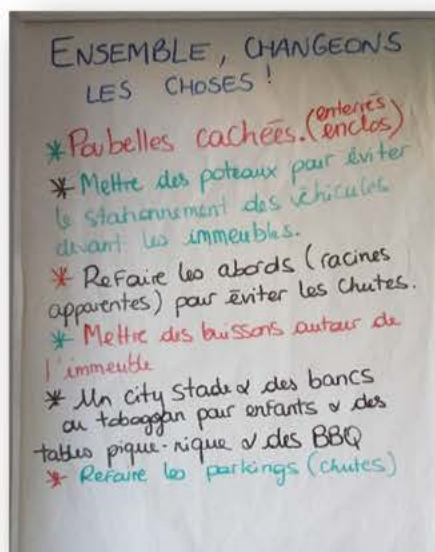 ENSEMBLE, CHANGEONS
LES CHOSES !
* Poubelles cachées. (enterrés
enclos)
* Mettre des poteaux pour éviter
le stationnement des véhicules
devant les immeubles.
* Refaire les abords (racines
apparentes) pour éviter les chutes.
* Mettre des buissons autour de
l'immeuble
* Un city stade & des bancs
ou toboggan pour enfants & des
tables pique-nique & des BBQ
* Refaire les parkings (chutes)